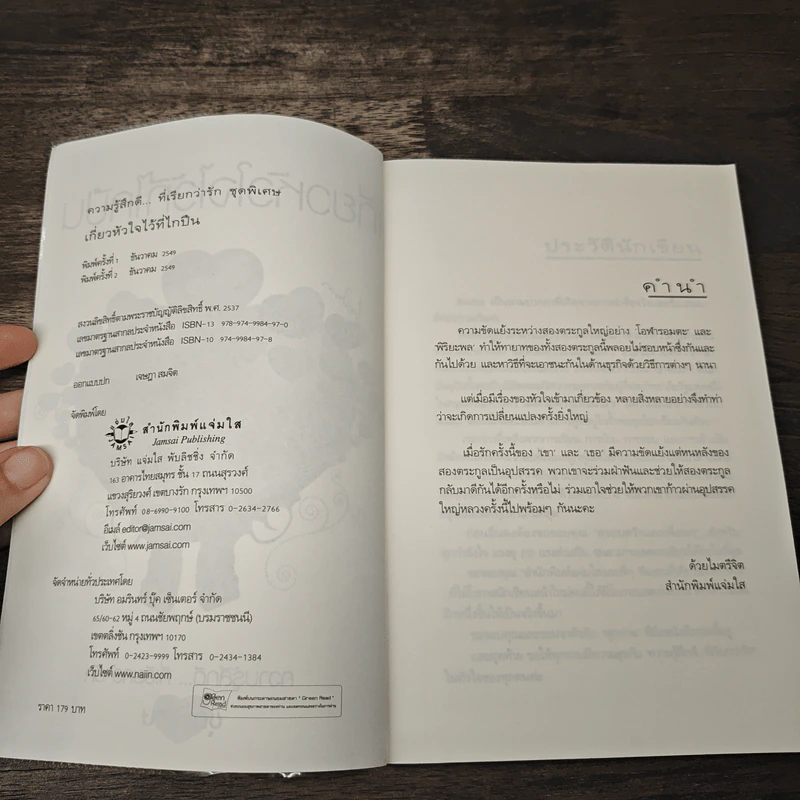 ความรู้สึกดี... ที่เรียกว่ารัก ชุดพิเศษ
เกี่ยวหัวใจไว้ที่ไกปืน
พิมพ์ครั้งที่ 1 ธันวาคม 2549
พิมพ์ครั้งที่ 2 ธันวาคม 2549
สงวนลิขสิทธิ์ตามพระราชบัญญัติลิขสิทธิ์ พ.ศ. 2537
เลขมาตรฐานสากลประจำหนังสือ ISBN-13 978-974-9984-97-0
เลขมาตรฐานสากลประจำหนังสือ ISBN-10 974-9984-97-8
ออกแบบปก เจษฎา สมจิต
จัดพิมพ์โดย
สำนักพิมพ์แจ่มใส
Jamsai Publishing
บริษัท แจ่มใส พับลิชชิ่ง จำกัด
163 อาคารไทยสมุทร ชั้น 17 ถนนสุรวงศ์
แขวงสุริยวงศ์ เขตบางรัก กรุงเทพฯ 10500
โทรศัพท์ 08-6990-9100 โทรสาร 0-2634-2766
อีเมล์ editor@jamsai.com
เว็บไซต์ www.jamsai.com
จัดจำหน่ายทั่วประเทศโดย
บริษัท อมรินทร์ บุ๊ค เซ็นเตอร์ จำกัด
65/60-62 หมู่ 4 ถนนชัยพฤกษ์ (บรมราชชนนี)
เขตตลิ่งชัน กรุงเทพฯ 10170
โทรศัพท์ 0-2423-9999 โทรสาร 0-2434-1384
เว็บไซต์ www.naiin.com
ราคา 179 บาท
Green Read
พิมพ์บนกระดาษถนอมสายตา "Green Read"
คำนำ
ความขัดแย้งระหว่างสองตระกูลใหญ่อย่าง 'โอฬารอมตะ' และ
'พิริยะพล' ทำให้ทายาทของทั้งสองตระกูลนี้พลอยไม่ชอบหน้าซึ่งกันและ
กันไปด้วย และหาวิธีที่จะเอาชนะกันในด้านธุรกิจด้วยวิธีการต่างๆ นานา
แต่เมื่อมีเรื่องของหัวใจเข้ามาเกี่ยวข้อง หลายสิ่งหลายอย่างจึงทำท่า
ว่าจะเกิดการเปลี่ยนแปลงครั้งยิ่งใหญ่
เมื่อรักครั้งนี้ของ 'เขา' และ 'เธอ' มีความขัดแย้งแต่หนหลังของ
สองตระกูลเป็นอุปสรรค พวกเขาจะร่วมฝ่าฟันและช่วยให้สองตระกูล
กลับมาดีกันได้อีกครั้งหรือไม่ ร่วมเอาใจช่วยให้พวกเขาก้าวผ่านอุปสรรค
ใหญ่หลวงครั้งนี้ไปพร้อมๆ กันนะคะ
ด้วยไมตรีจิต
สำนักพิมพ์แจ่มใส